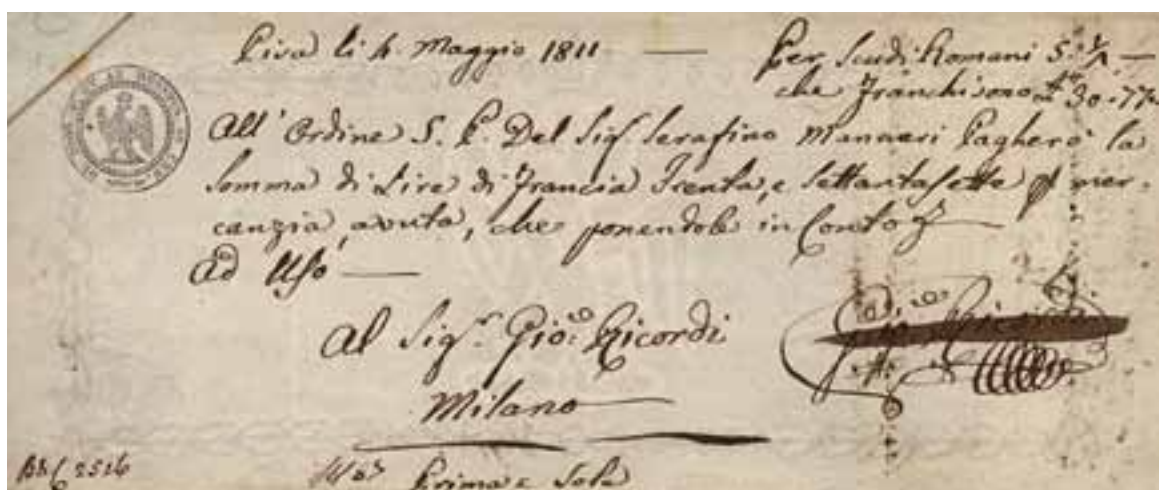 Pisa li 4. Maggio 1811 — Per Scudi Romani 5:
che Franchi sono 30.77
All' Ordine S. P. Del Sig.r Serafino Manueri Pagherò la
Somma di Lire di Francia Trenta, e Settantasette mer-
canzia avuta, che ponendole in Conto
Ad Uso —
Al Sig.r Gio: Ricordi
Milano
Prima e Sola